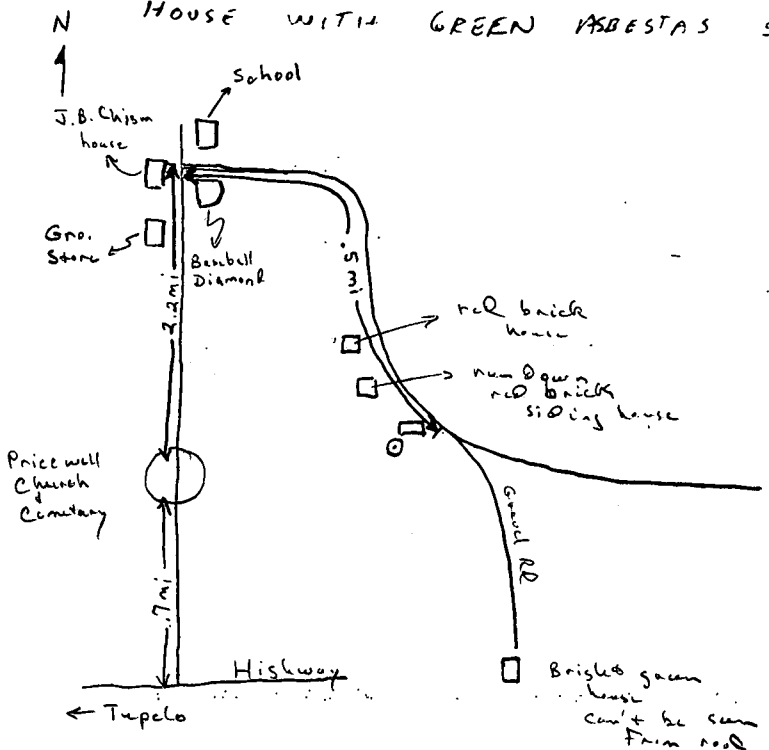 HOUSE WITH GREEN ASBESTAS S
N
School
J.B. Chism
house
Gro.
Store
Baseball
Diamond
2.2mi
.5 mi
red brick
house
run down
red brick
siding house
Pricewell
Church
Cemetary
.7mi
Gravel RD
Highway
← Tupelo
Bright green
house
can't be seen
From road